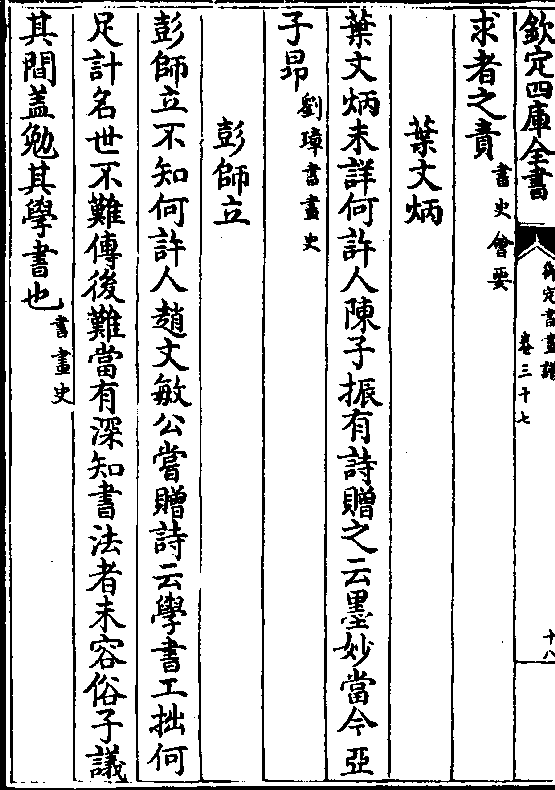 欽定四庫全書
御定書畫譜
卷三十七
十八
求者之責書史會要
葉文炳
葉文炳未詳何許人陳子振有詩贈之云墨妙當今亞
子昂劉璋書畫史
彭師立
彭師立不知何許人趙文敏公嘗贈詩云學書工拙何
足計名世不難傳後難當有深知書法者未容俗子議
其間葢勉其學書也書畫史